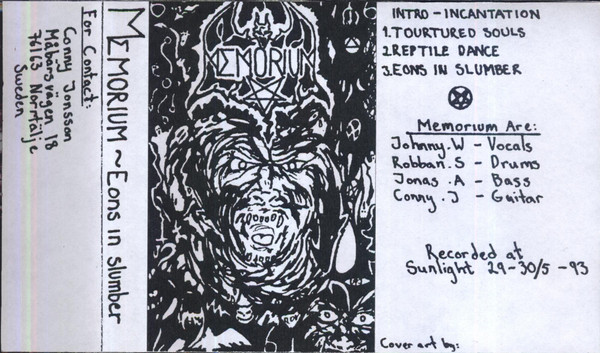 For Contact:
Conny Jonsson
Måbärsvägen 18
76163 Norrtälje
Sweden
MEMORIUM ~ Eons in slumber
MEMORIUM
INTRO - INCANTATION
1. TOURTURED SOULS
2. REPTILE DANCE
3. EONS IN SLUMBER
Memorium Are:
Johnny.W - Vocals
Robban.S - Drums
Jonas.A - Bass
Conny.J - Guitar
Recorded at
Sunlight 29-30/5 -93
Cover art by: